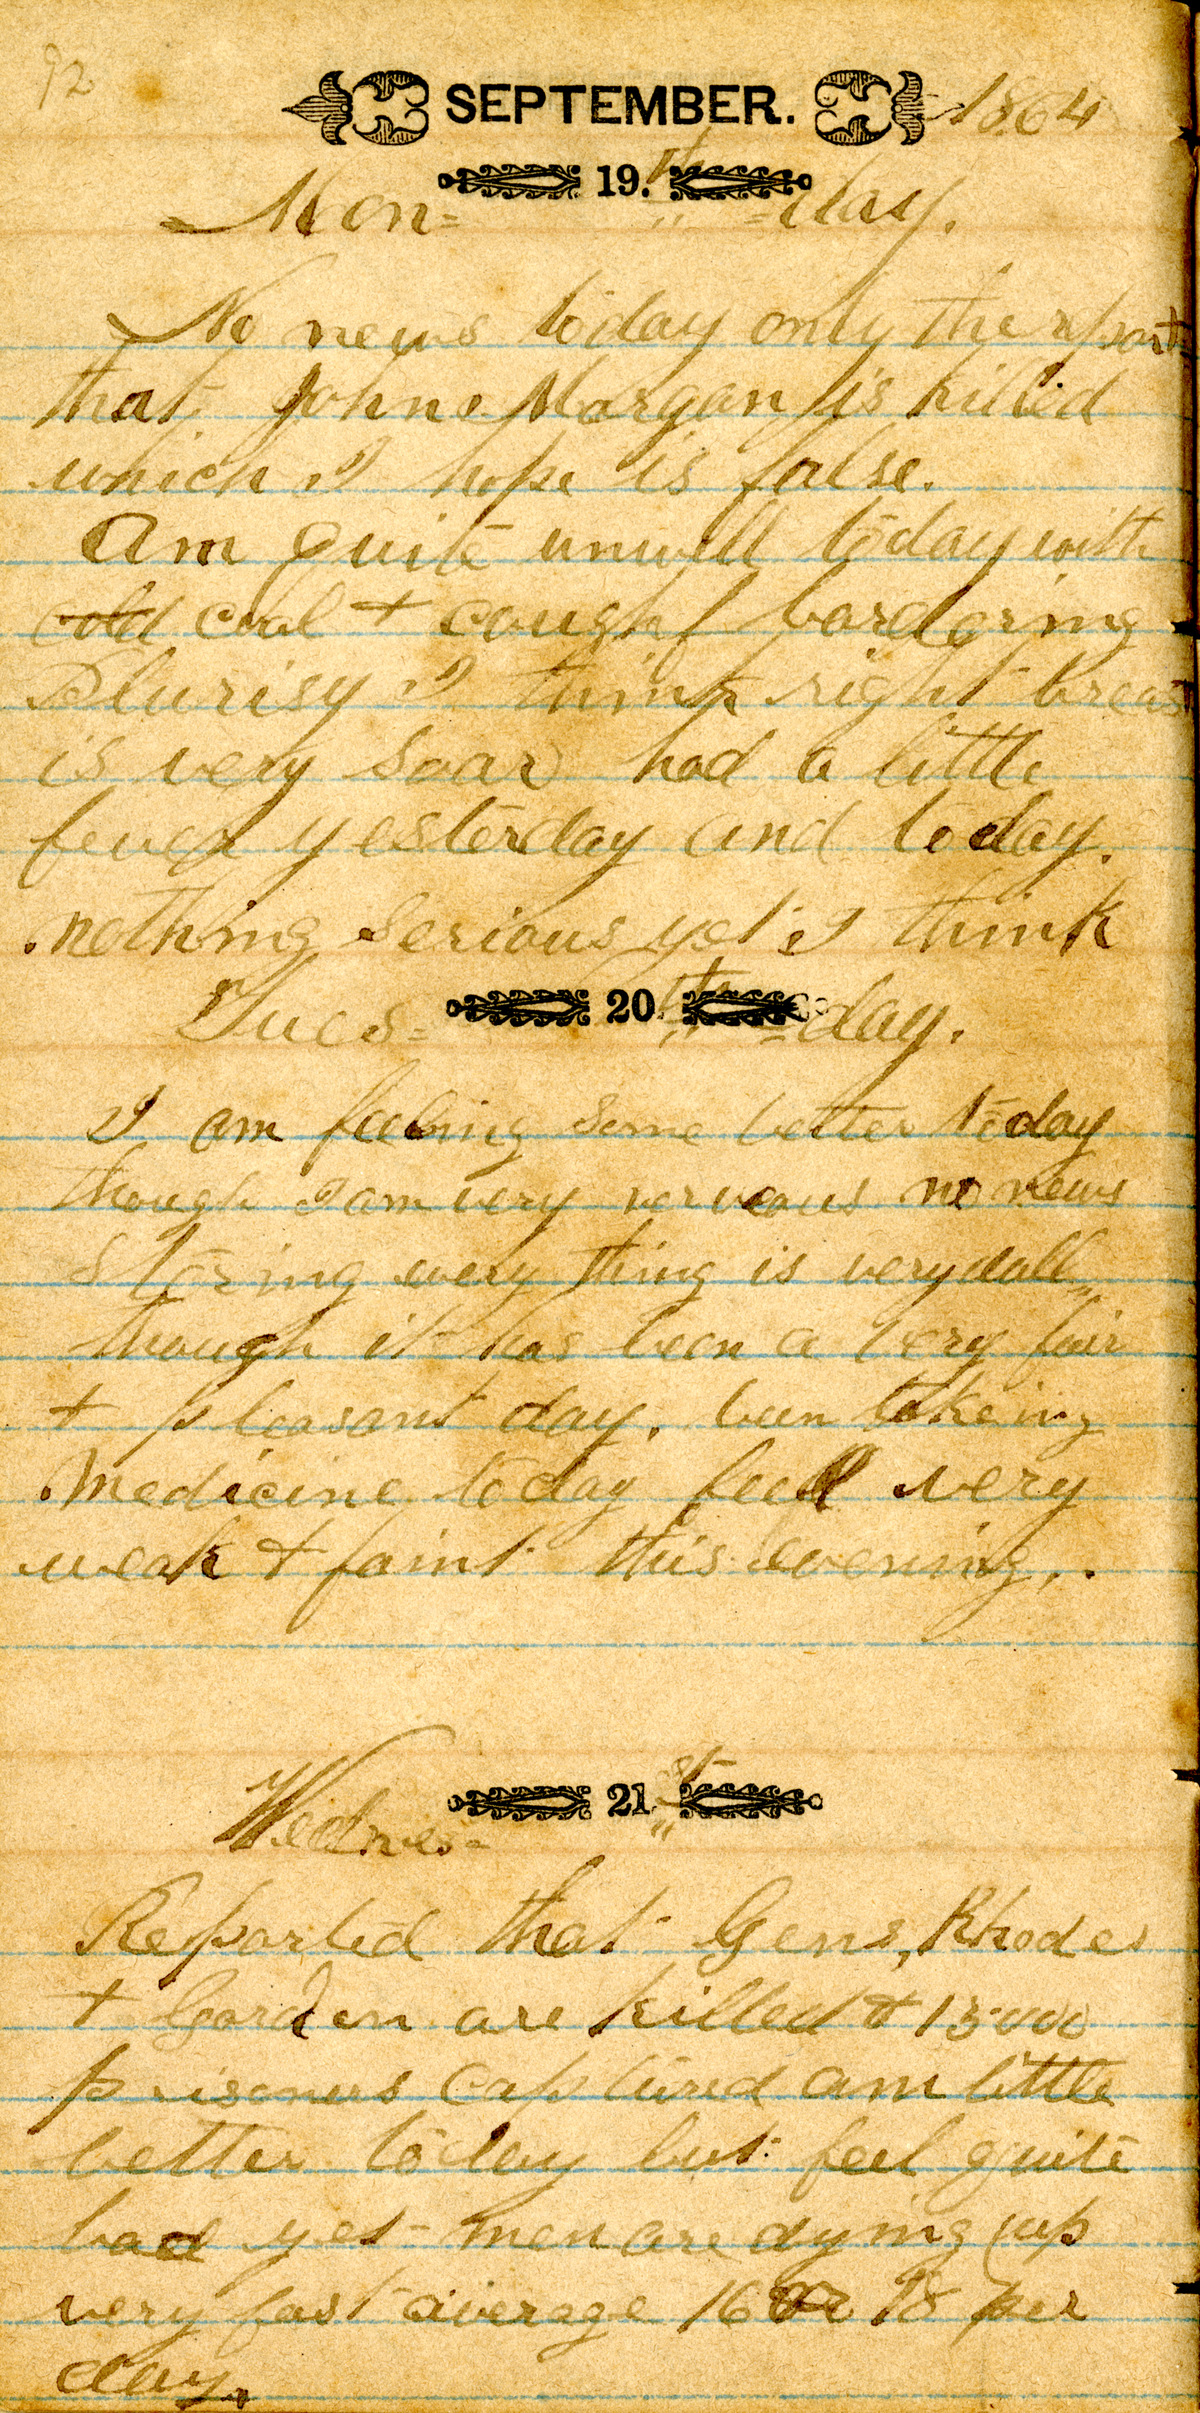 92
SEPTEMBER. 1864
Mon= 19.th =day.
No news today only the report
that John Morgan is killed
which I hope is false.
Am quite unwell today with
cold coal + cough bordering
Plurisy I think right breast
is very soar had a little
fever yesterday and today.
nothing serious yet I think
Tues= 20.th =day.
I am feeling some better today
though I am very nerveous no news
stiring every thing is very dull
though it has been a very fair
+ pleasant day. been takeing
Medicine today feel very
weak + faint this evening..
Wednes= 21.st
Reported that Gens, Rhodes
+ Gorden are killed & 15000
prisoners captured am little
better today but feel quite
bad yet men are dying up
very fast average 16 or 18 per
day.